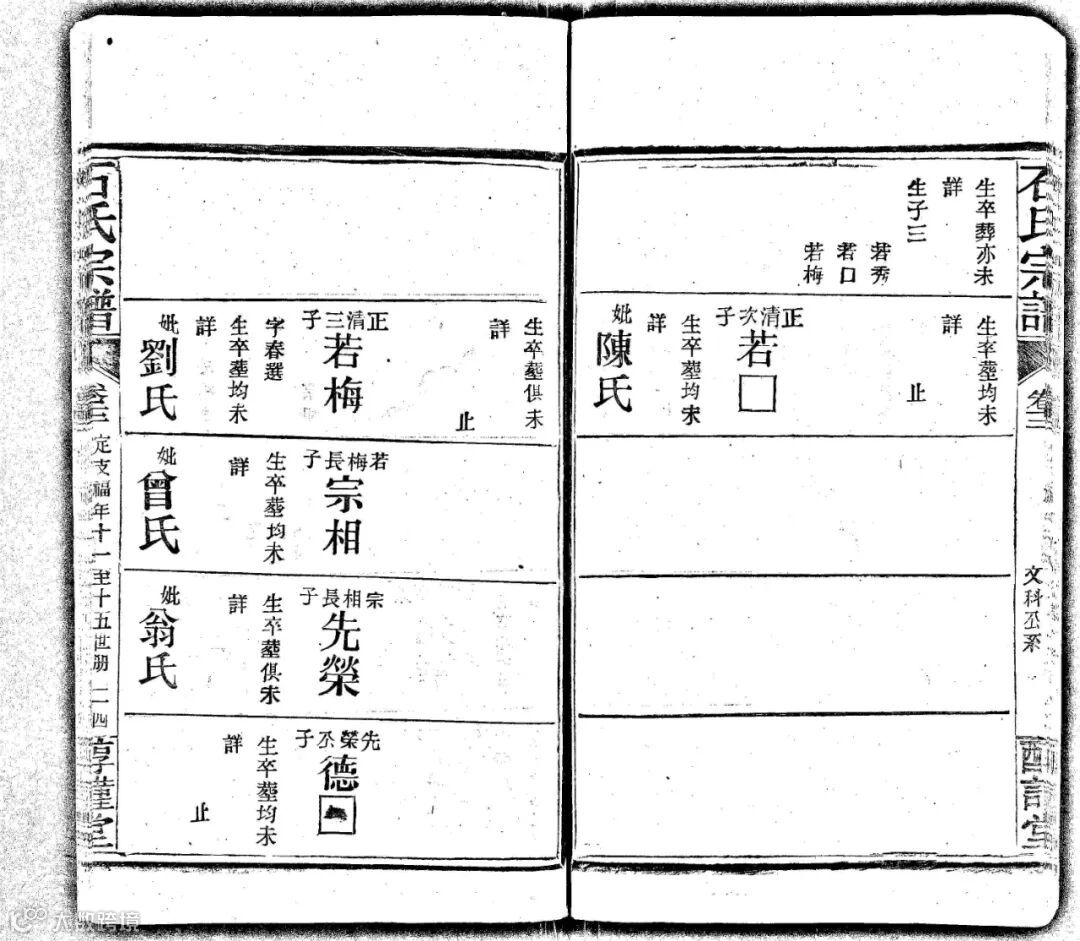 石氏宗譜
卷三
文科丕系
生卒葬亦未
詳
生子三
若秀
若口
若梅
生卒塟均未
詳
止
正清次子
若□
生卒塟均未
詳
妣
陳氏
生卒塟俱未
詳
止
正清三子
若梅
字春選
生卒塟均未
詳
妣
劉氏
若梅長子
宗相
生卒塟均未
詳
妣
曾氏
宗相長子
先榮
生卒塟俱未
詳
妣
翁氏
先榮丕子
德
生卒塟均未
詳
止
石氏宗譜
卷三
定支福年十一至十五世册
二四
大数跨境